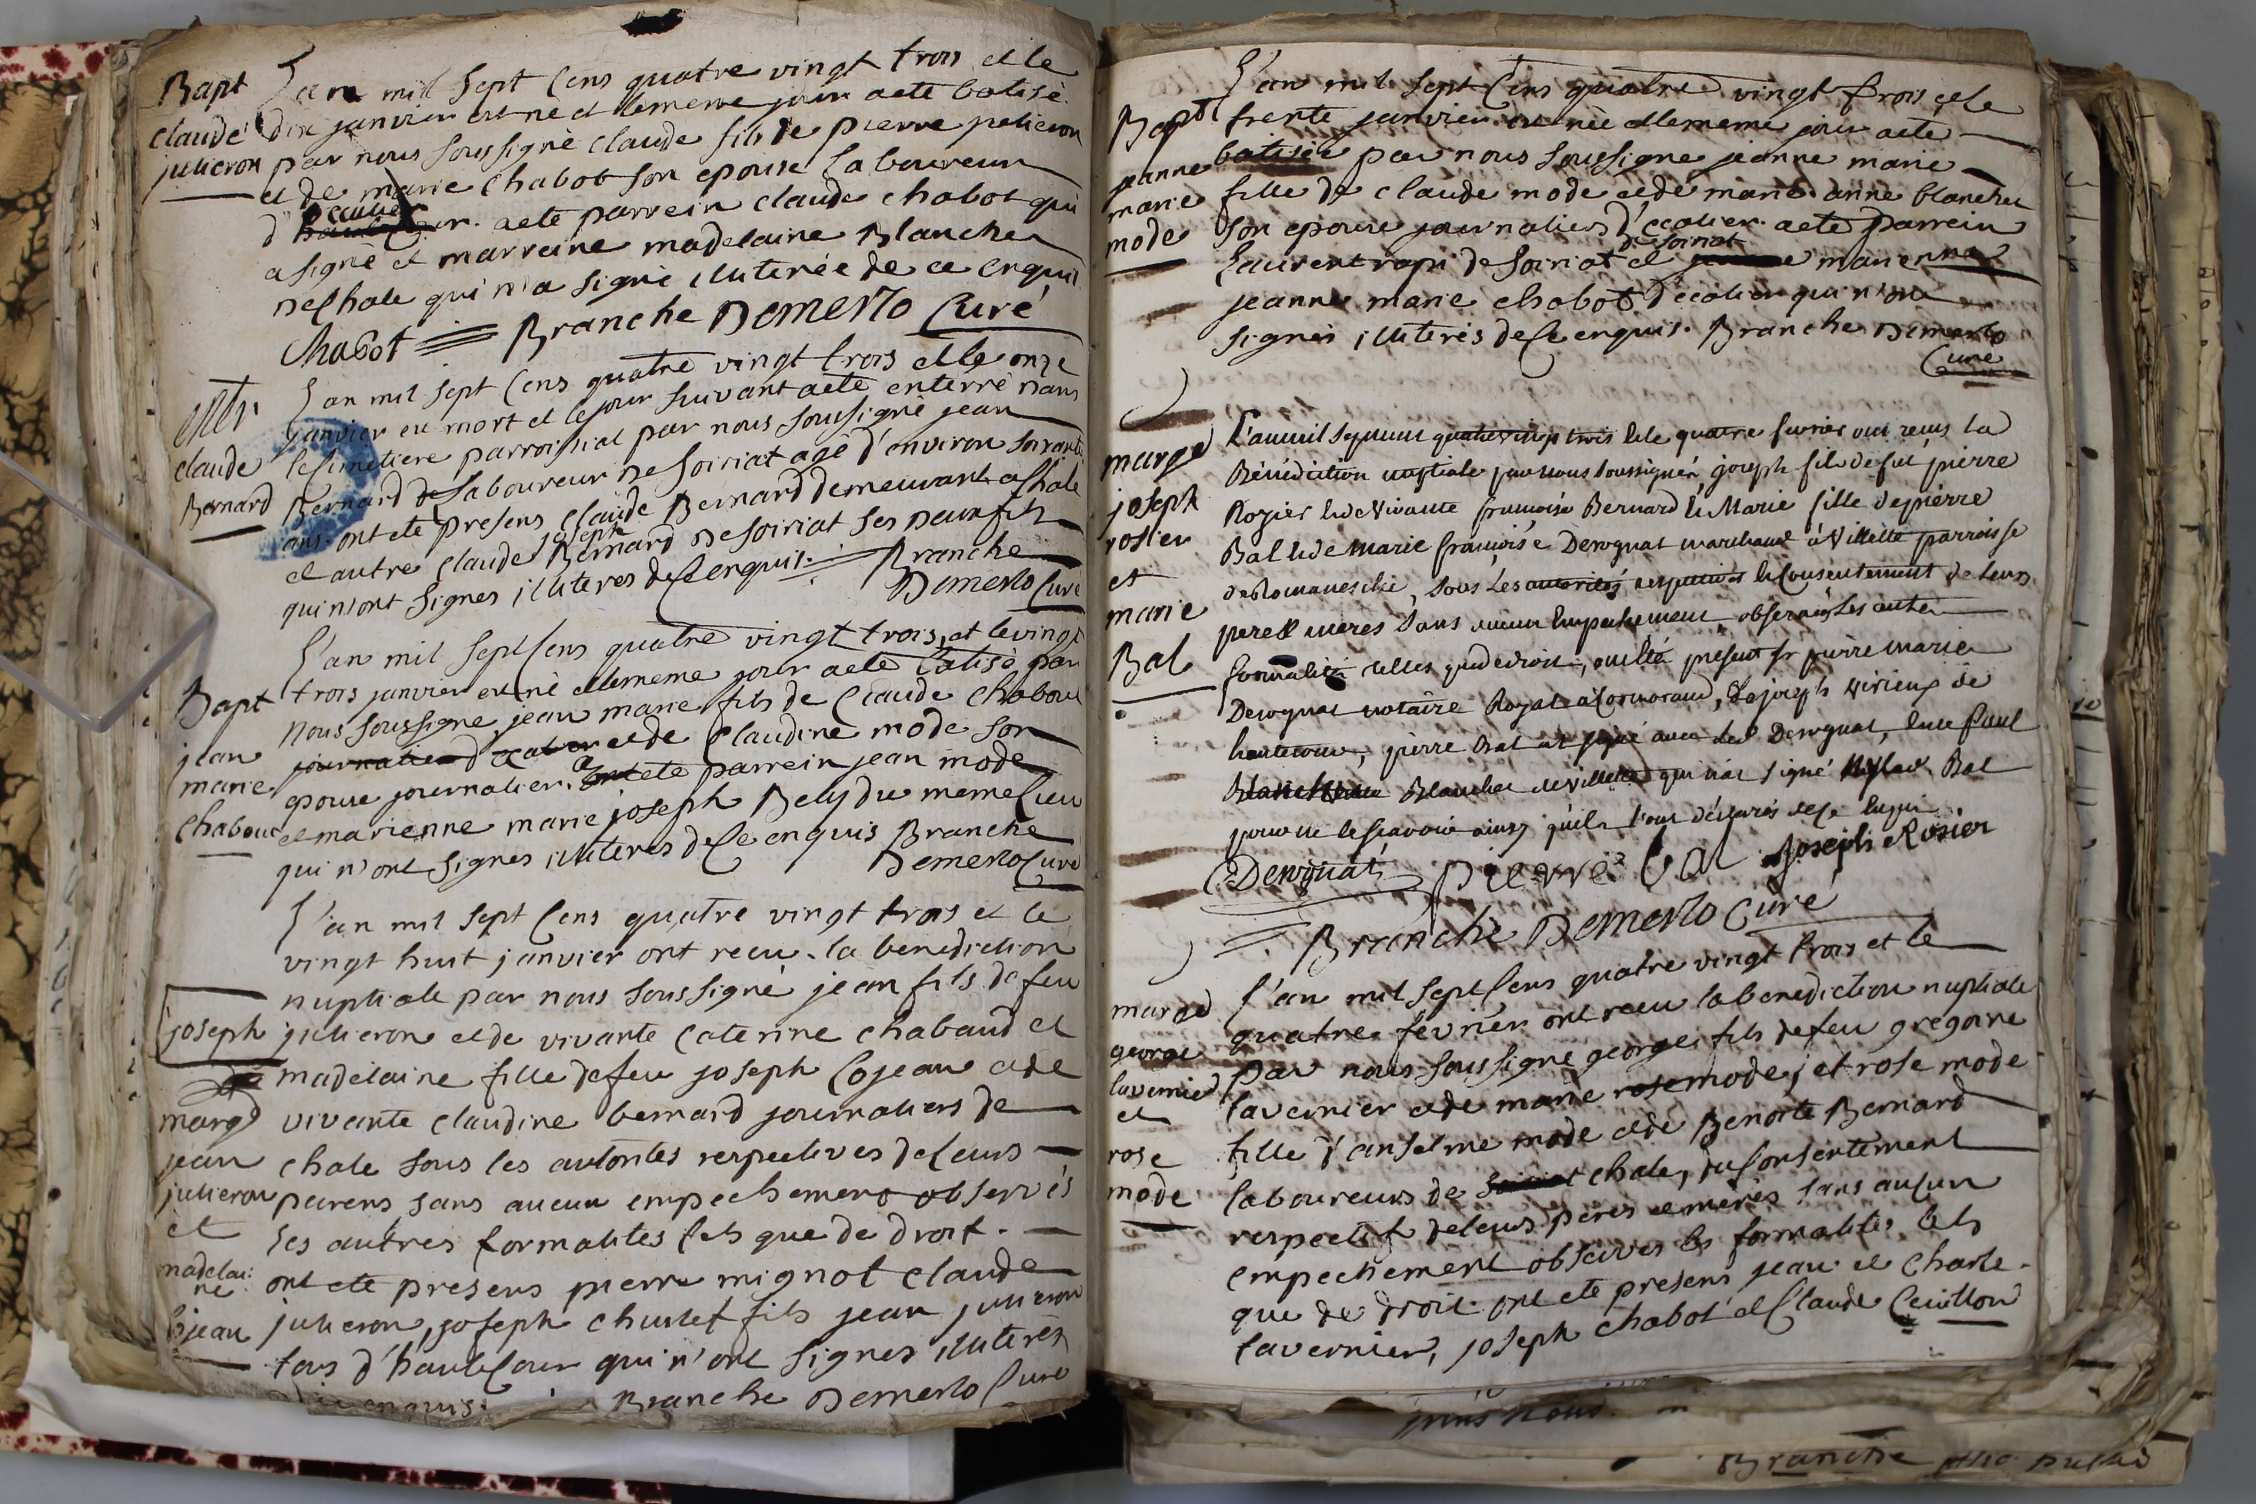 Bapt
claude
julieron
L'an mil sept Cens quatre vingt trois et le
dix janvier est né et lememe jour aeté batisé
par nous soussigné claude fils de pierre julieron
et de marie Chabot son epouse laboureur
d'Ecolier aeté parrein claude chabot qui
a signé et marreine madelaine Blanche
deChale qui n'a signé illiterée de ce enquis
Chabot Branche Demerlo Curé
enter
claude
Bernard
L'an mil sept Cens quatre vingt trois et le onze
janvier est mort et lejour suivant aeté enterré dans
leCimetiere parroissial par nous soussigné jean
Bernard de Laboureur de soiriat agé d'environ soixante
ans ont eté presens claude Bernard demeurant a Chale
et autre claude joseph Bernard de soiriat ses deux fils
qui n'ont signes illiteres deCe enquis. Branche
Demerlo Curé
Bapt
jean
marie
Chabout
L'an mil sept Cens quatre vingt trois, et levingt
trois janvier est né et lememe jour aeté batisé par
nous soussigné jean marie fils de Claude Chabout
journalier d'Ecolier et de Claudine mode son
epouse journalier. aeté parrein jean mode
et marienne marie joseph Bely du meme Lieu
qui n'ont signes illiteres deCe enquis Branche
Demerlo Curé
L'an mil sept Cens quatre vingt trois et le
vingt huit janvier ont recu la benediction
nuptiale par nous soussigné jean fils de feu
joseph julieron et de vivante Caterine chabaud et
madelaine fille defeu joseph Cojean et de
vivante claudine bernard journaliers de
chale sous les autorites respectives deleurs
parens sans aucun empechemens observés
les autres formalites tels que de droit.
ont eté presens pierre mignot claude
julieron, joseph churlet fils jean julieron
tous d'hauteCour qui n'ont signes illiterés
de ce enquis. Branche Demerlo Curé
marg
jean
julieron
et
madelai
ne
Cojean
Bapt
jeanne
marie
mode
L'an mil sept Cens quatre vingt trois et le
trente janvier est née et lememe jour aeté
batisée par nous soussigné jeanne marie
fille de claude mode et de marie anne blanchet
son epouse journaliers d'Ecolier. aeté parrein
de soiriat
Laurent rapi de soiriat et marienne
jeanne marie chabot d'ecolier qui n'ont
signés illiterés deCe enquis. Branche Demerlo
Curé
marge
joseph
rosier
et
marie
Bal
L'anmil septcent quatrevingt trois et le quatre fevrier ont reçus la
Bénédiction nuptiale par nous soussigné, joseph fils de feu pierre
Rozier et de Vivante françoise Bernard et Marie fille de pierre
Bal et de Marie françoise Derognat marchand à Villette parroisse
de Romanesche, sous les autorités respectives et Consentement de leurs
pere et meres sans aucun Empechement observés les autres
formalités telles que de droit, ont été présent sr pierre Marie
Derognat notaire Royal a Cormorand, et joseph virieux de
hautecour, pierre Bal ont signé avec led Derognat, et non Paul
Blanche de villette qui n'at signé Bal
pour ne le sçavoir ainsy qu'ils l'ont déclarés de ce Enquis
Derognat pierre bal Joseph Rosier
Branche Demerlo Curé
marge
george
lavernier
et
rose
mode
L'an mil sept Cens quatre vingt trois et le
quatre février ont recu la benediction nuptiale
par nous soussigné george fils defeu gregoire
lavernier et de marie mode, et rose mode
fille d'anselme mode et de Benoite Bernard
laboureurs de chale, du Consentement
respectif deleurs peres et meres sans auCun
empechement observes les formalités tels
que de droit ont eté presens jean et Charle
lavernier, joseph chabot et Claude Cuillon
Branche